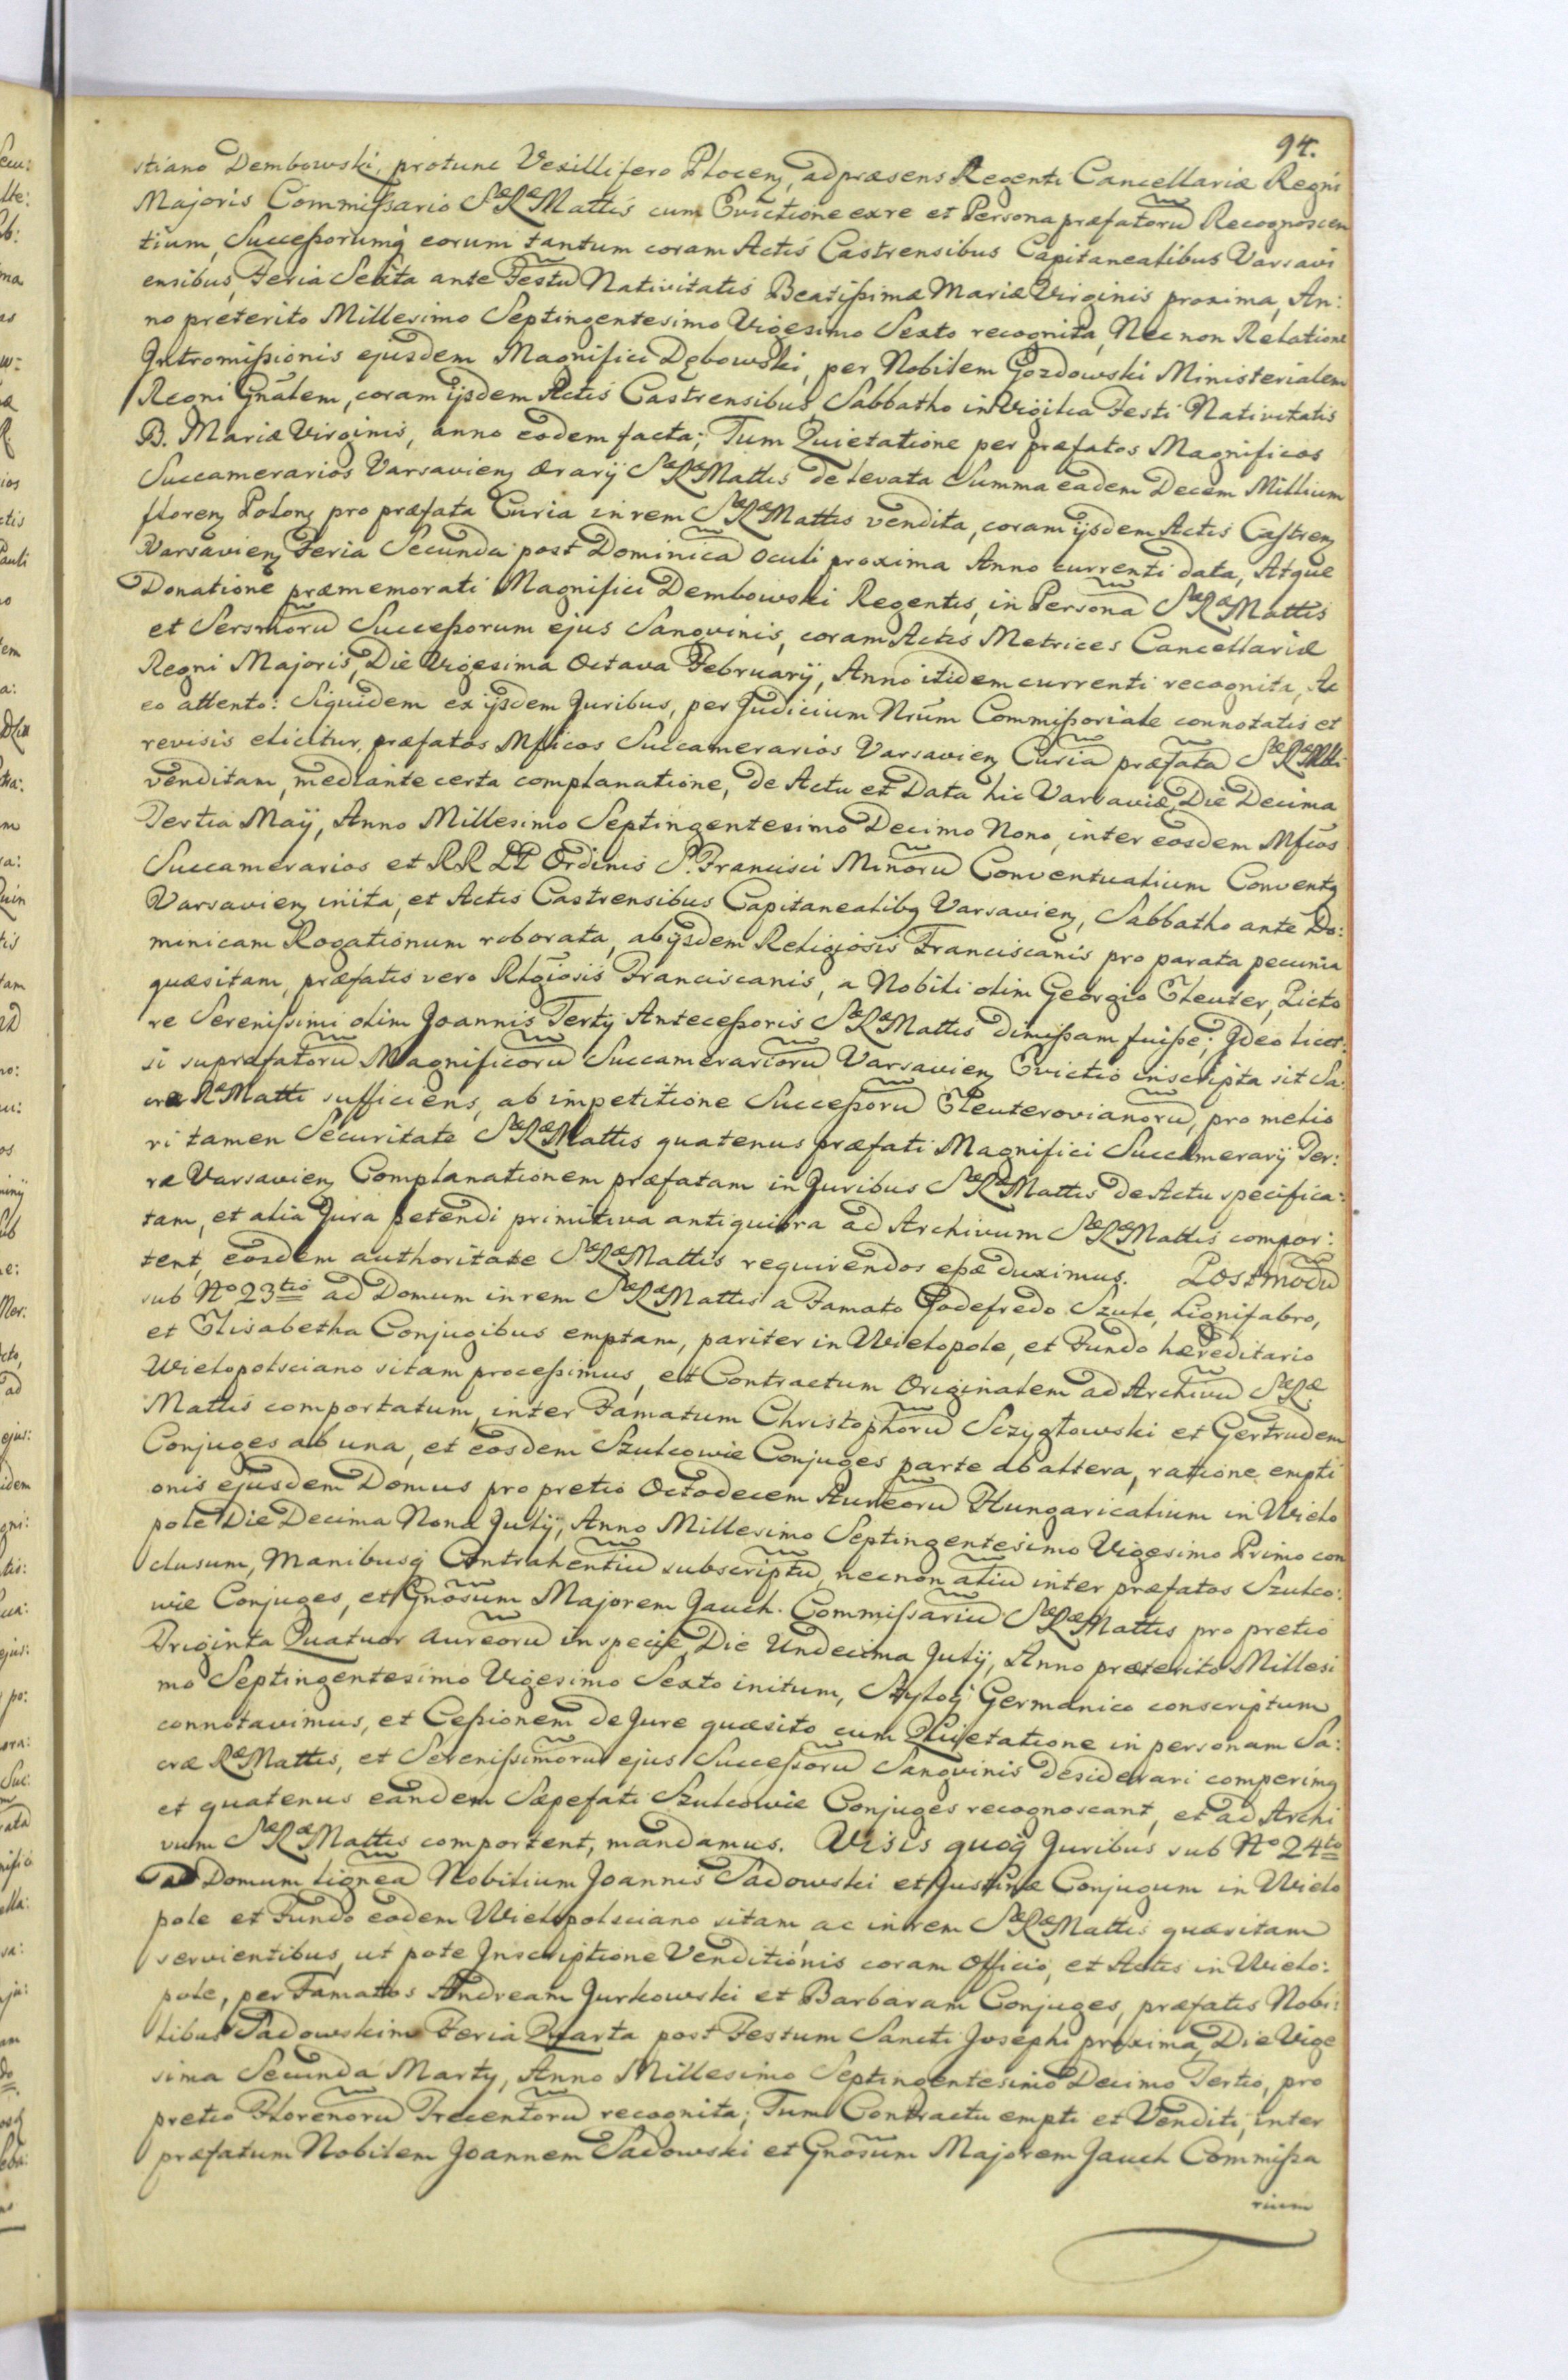 94.
stiano Dembowski, protunc Vexillifero Plocen, ad præsens Regenti Cancellariæ Regni
Majoris Commissario SæRæMattis cum Evictione exre et Persona præfatorũ Recognoscen
tium, Successorumq eorum tantum coram Actis Castrensibus Capitanealibus Varsavi
ensibus, Feria Sexta ante Festũ Nativitatis Beatissimæ Mariæ Virginis proxima, An:
no preterito Millesimo Septingentesimo Vigesimo Sexto recognita, Nec non Relatione
Intromissionis ejusdem Magnifici Dębowski, per Nobilem Gozdowski Ministerialem
Regni Gnãlem, coram ijsdem Actis Castrensibus Sabbatho in Vigilia Festi Nativitatis
B. Mariæ Virginis, anno eodem facta; Tum Quietatione per præfatos Magnificos
Succamerarios Varsavien Ærarij SæRæMattis de levata Summa eadem Decem Millium
floren Polon pro præfata Curia in rem SæRæMattis vendita, coram ijsdem Actis Castren
Varsavien Feria Secunda post Dominicã Oculi proxima Anno currenti data, Atque
Donatione præmemorati Magnifici Dembowski Regentis, in Personã SæRæMattis
et Sersmorũ Successorum ejus Sangvinis, coram Actis Metrices Cancellariæ
Regni Majoris, Die Vigesima Octava February, Anno itidem currenti recognita, Ac
eo attento: Siquidem ex ijsdem Juribus, per Judicium Nrũm Commissoriale connotatis et
revisis elicitur, præfatos Mficos Succamerarios Varsavien Curiã præfatã SæRæMtti
venditam, mediante certa complanatione, de Actu et Data hic Varsaviæ, Die Decima
Tertia Maij, Anno Millesimo Septingentesimo Decimo Nono, inter eosdem Mficos
Succamerarios et RR PP Ordinis S. Francisci Minorũ Conventualium Convents
Varsavien inita, et Actis Castrensibus Capitanealibs Varsavien, Sabbatho ante Do:
minicam Rogationum roborata, ab ijsdem Religiosis Franciscanis pro parata pecunia
quæsitam, præfatis vero Rlgiosis Franciscanis, a Nobili olim Georgio Eleuter, Picto
re Serenissimi olim Joannis Tertij Antecessoris SæRæMattis dimissam fuisse; Ideo licet
si supræfatorũ Magnificorũ Succamerariorũ Varsavien Evictio inscripta sit Sa:
cræ RæMatti sufficiens, ab impetitione Successorũ Eleuterovianorũ, pro melio
ri tamen Securitate SæRæMattis quatenus præfati Magnifici Succamerarij Ter:
ræ Varsavien Complanationem præfatam in Juribus SæRæMattis de Actu specifica:
tam, et alia Jura petendi primitiva antiquiora ad Archivum SæRæMattis compor:
tent, eosdem authoritate SæRæMattis requirendos esse duximus. Postmodũ
sub No 23tio ad Domum in rem SæRæMattis a Famato Godefredo Szulc, Lignifabro,
et Elisabetha Conjugibus emptam, pariter in Wielopole, et Fundo hæreditario
Wielopolsciano sitam processimus, et Contractum Originalem ad Archivũ SæRæ
Mattis comportatum, inter Famatum Christophorũ Sczygłowski et Gertrudem
Conjuges ab una, et eosdem Szulcowie Conjuges parte ab altera, ratione empti
onis ejusdem Domus pro pretio Octodecem Aureorũ Hungaricalium in Wielo
pole Die Decima Nona Julij, Anno Millesimo Septingentesimo Vigesimo Primo con
clusum, Manibusq Contrahentiũ subscriptũ, necnon aliũ inter præfatos Szulco:
wie Conjuges, et Gnõsum Majorem Jauch. Commissariũ SæRæMattis pro pretio
Triginta Quatuor aureorũ in specie, Die Undecima Julij, Anno præterito Millesi
mo Septingentesimo Vigesimo Sexto initum, Styloq Germanico conscriptum
connotavimus, et Cessionem de Jure quæsito cum Quietatione in personam Sa:
cræ RæMattis, et Serenissimorũ ejus Successorũ Sangvinis desiderari comperims
et quatenus eandem Sæpefati Szulcowie Conjuges recognoscant, et ad Archi
vum SæRæMattis comportent, mandamus. Visis quoq Juribus sub No 24to
ad Domum ligneã Nobilium Joannis Sadowski et Justinæ Conjugum in Wielo
pole et Fundo eodem Wielopolsciano sitam, ac in rem SæRæMattis quæsitam
servientibus, ut pote Inscriptione Venditionis coram Officio, et Actis in Wielo:
pole, per Famatos Andream Jurkowski et Barbaram Conjuges, præfatis Nobi:
libus Sadowskim Feria Quarta post Festum Sancti Josephi proxima, Die Vige
sima Secunda Martij, Anno Millesimo Septingentesimo Decimo Tertio, pro
pretio Florenorũ Trecentorũ recognita; Tum Contractu empti et Venditi, inter
præfatum Nobilem Joannem Sadowski et Gnõsum Majorem Jauch Commissa
rium